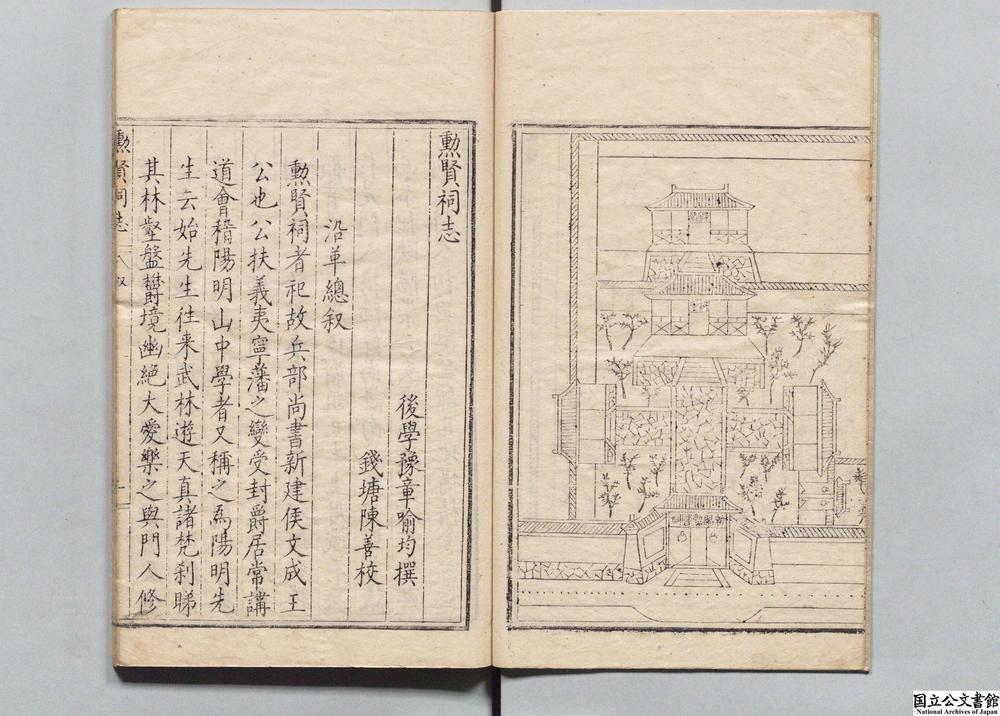 勳賢祠志
後學豫章喻均撰
錢塘陳善校
沿革總叙
勳賢祠者祀故兵部尚書新建侯文成王
公也公扶義夷寧藩之變受封爵居常講
道會稽陽明山中學者又稱之爲陽明先
生云始先生往来武林遊天真諸梵刹睇
其林壑盤欝境幽絕大愛樂之與門人修
勳賢祠志
国立公文書館
National Archives of Japan